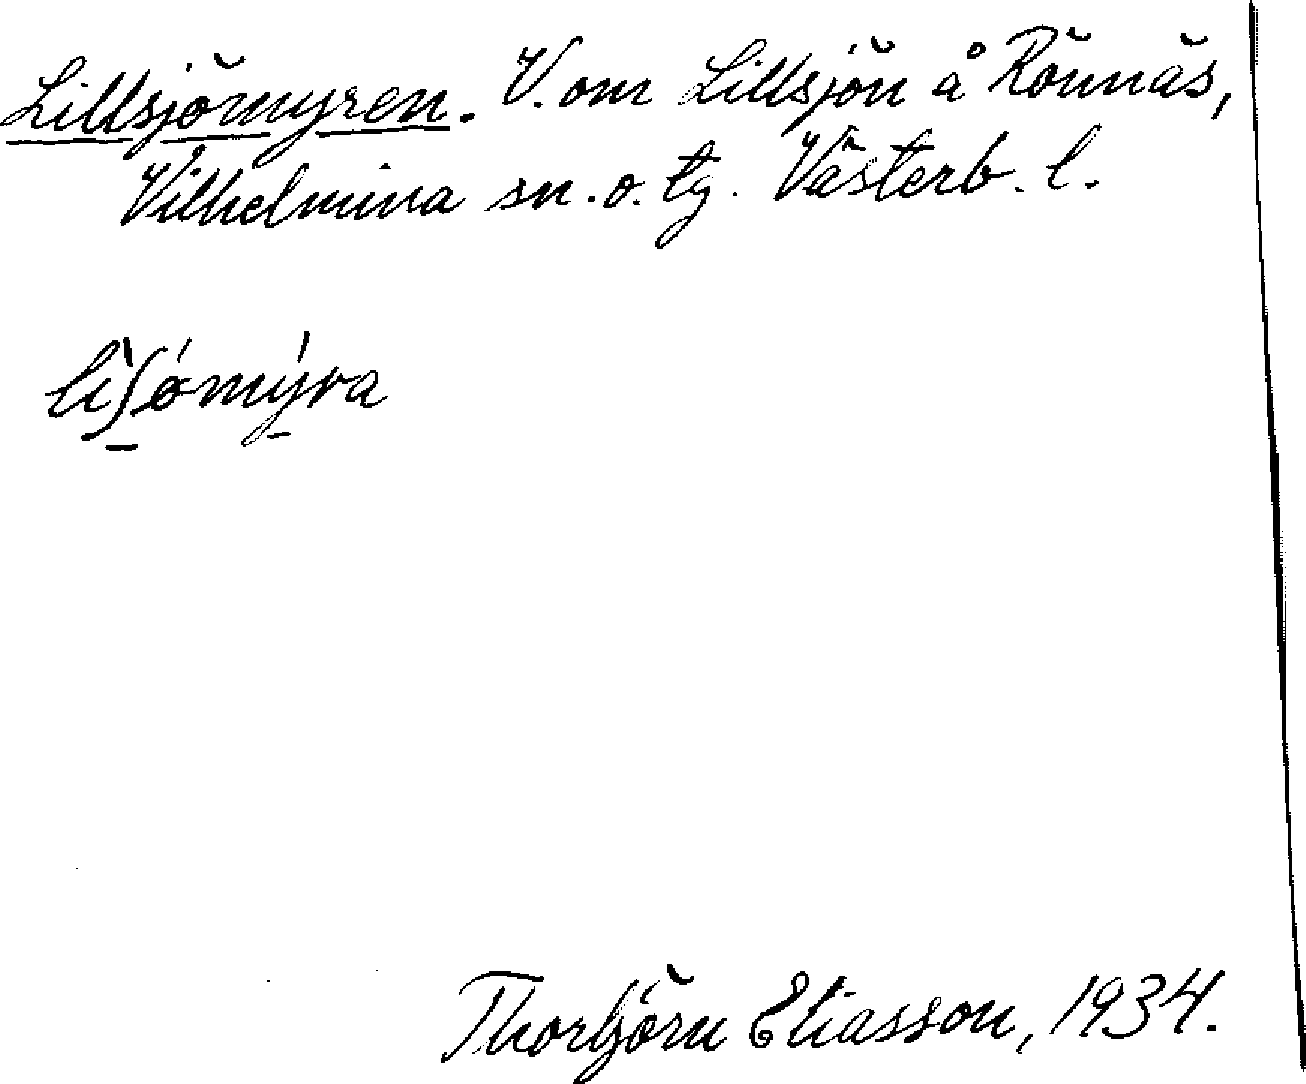 Lillsjömyren. V. om Lillsjön å Rönnäs,
Vilhelmina sn. o. tg. Västerb. l.
lìʃómýra
Thorbjörn Eliasson, 1934.